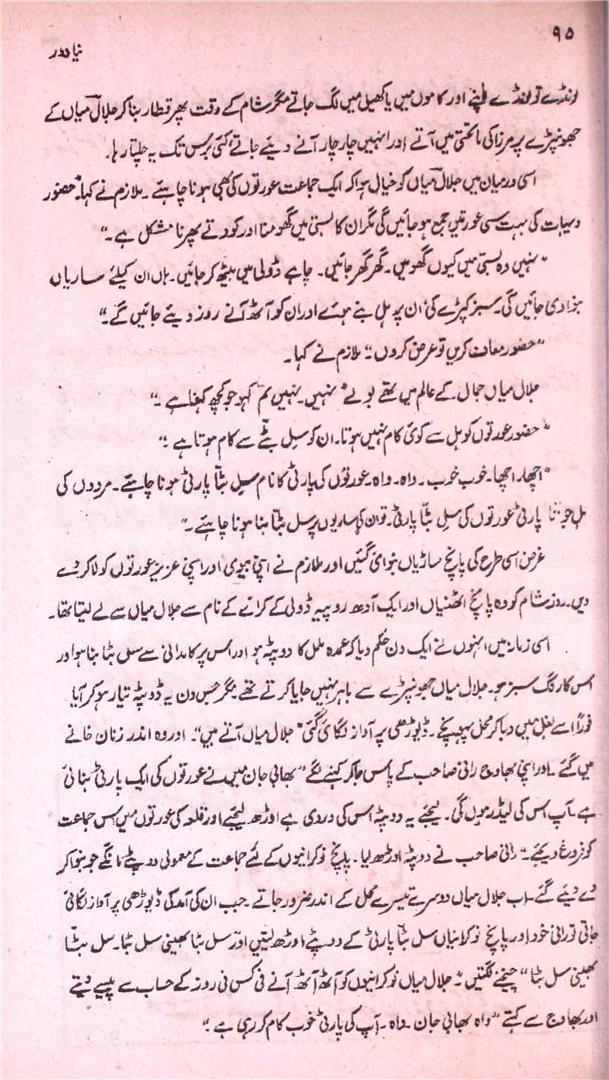 ۹۵
نیا دور
لونڈے تو لونڈے اپنے اور کاموں میں یا کھیل میں لگ جاتے مگر شام کے وقت پھر قطار بنا کر جلال میاں کے
جھونپڑے پر مرزا کی ماتحتی میں آتے اور انہیں چار چار آنے دیئے جاتے، کئی برس تک یہ چلتا رہا۔
اسی درمیان میں جلال میاں کو خیال ہوا کہ ایک جماعت عورتوں کی بھی ہونا چاہئے۔ ملازم نے کہا "حضور
دیہات کی بہت سی عورتیں جمع ہو جائیں گی مگر ان کا بستی میں گھومنا اور کودتے پھرنا مشکل ہے۔"
"نہیں وہ بستی میں کیوں گھومیں۔ گھر گھر جائیں۔ چاہے ڈولی میں بیٹھ کر جائیں۔ ہاں ان کیلئے ساریاں
بنوا دی جائیں گی۔ سبز کپڑے کی، ان پر ہل بنے ہوئے اور ان کو آٹھ آنے روز دیئے جائیں گے۔"
"حضور معاف کریں تو عرض کروں" ملازم نے کہا۔
جلال میاں جمال کے عالم میں تھے بولے "نہیں۔ نہیں تم کہو جو کچھ کہنا ہے۔"
"حضور عورتوں کو ہل سے کوئی کام نہیں ہوتا۔ ان کو سِل بٹّے سے کام ہوتا ہے۔"
"اچھا۔ اچھا۔ خوب خوب۔ واہ۔ واہ۔ عورتوں کی پارٹی کا نام سِل بٹّا پارٹی ہونا چاہئے۔ مردوں کی
ہل جوتتا پارٹی عورتوں کی سِل بٹّا پارٹی۔ تو ان کی ساریوں پر سل بٹّا بنا ہونا چاہئے۔"
غرض اسی طرح کی پانچ ساڑیاں بنوائی گئیں اور ملازم نے اپنی بیوی اور اپنی عزیز عورتوں کو لا کر دے
دیں۔ روز شام کو وہ پانچ اٹھنیاں اور ایک آدھ روپیہ ڈولی کے کرائے کے نام سے جلال میاں سے لے لیتا تھا۔
اسی زمانہ میں انہوں نے ایک دن حکم دیا کہ عمدہ ململ کا دوپٹہ ہو اور اس پر کامدانی سے سل بٹّا بنا ہو اور
اس کا رنگ سبز ہو۔ جلال میاں جھونپڑے سے باہر نہیں جایا کرتے تھے مگر جس دن یہ ڈوپٹہ تیار ہو کر آیا
فوراً اسے بغل میں دبا کر محل پہنچے۔ ڈیوڑھی پر آواز لگائی گئی "جلال میاں آتے ہیں"۔ اور وہ اندر زنان خانے
میں گئے۔ اور اپنی بھاوج رانی صاحب کے پاس جا کر کہنے لگے "بھابی جان میں نے عورتوں کی ایک پارٹی بنائی
ہے۔ آپ اس کی لیڈر ہوں گی۔ لیجئے یہ دوپٹہ اس کی وردی ہے اوڑھ لیجئے اور قلعہ کی عورتوں میں اس جماعت
کو فروغ دیجئے۔" رانی صاحب نے دوپٹہ اوڑھ لیا۔ پانچ نوکرانیوں کے لئے جماعت کے معمولی دوپٹے مانگے جو بنوا کر
دے دیئے گئے۔ اب جلال میاں دوسرے تیسرے محل کے اندر ضرور جاتے۔ جب ان کی آمد کی ڈیوڑھی پر آواز لگائی
جاتی تو رانی خود اور پانچ نوکرانیاں سل بٹّا پارٹی کے دوپٹے اوڑھ لیتیں اور سل بٹا بھینی سل بٹا۔ سل بٹّا
بھینی سل بٹا" چیخنے لگتیں۔ جلال میاں نوکرانیوں کو آٹھ آٹھ آنے فی کس فی روز کے حساب سے پیسے دیتے
اور بھاوج سے کہتے "واہ بھابی جان۔ واہ۔ آپ کی پارٹی خوب کام کر رہی ہے۔"